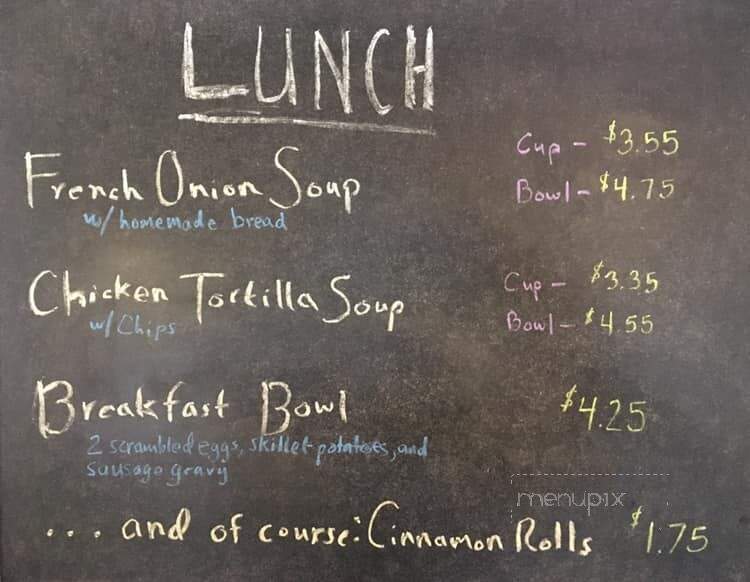 LUNCH
French Onion Soup
w/ homemade bread
Cup - $3.55
Bowl - $4.75
Chicken Tortilla Soup
w/ Chips
Cup - $3.35
Bowl - $4.55
Breakfast Bowl $4.25
2 scrambled eggs, skillet potatoes, and
sausage gravy
menupix
... and of course: Cinnamon Rolls $1.75